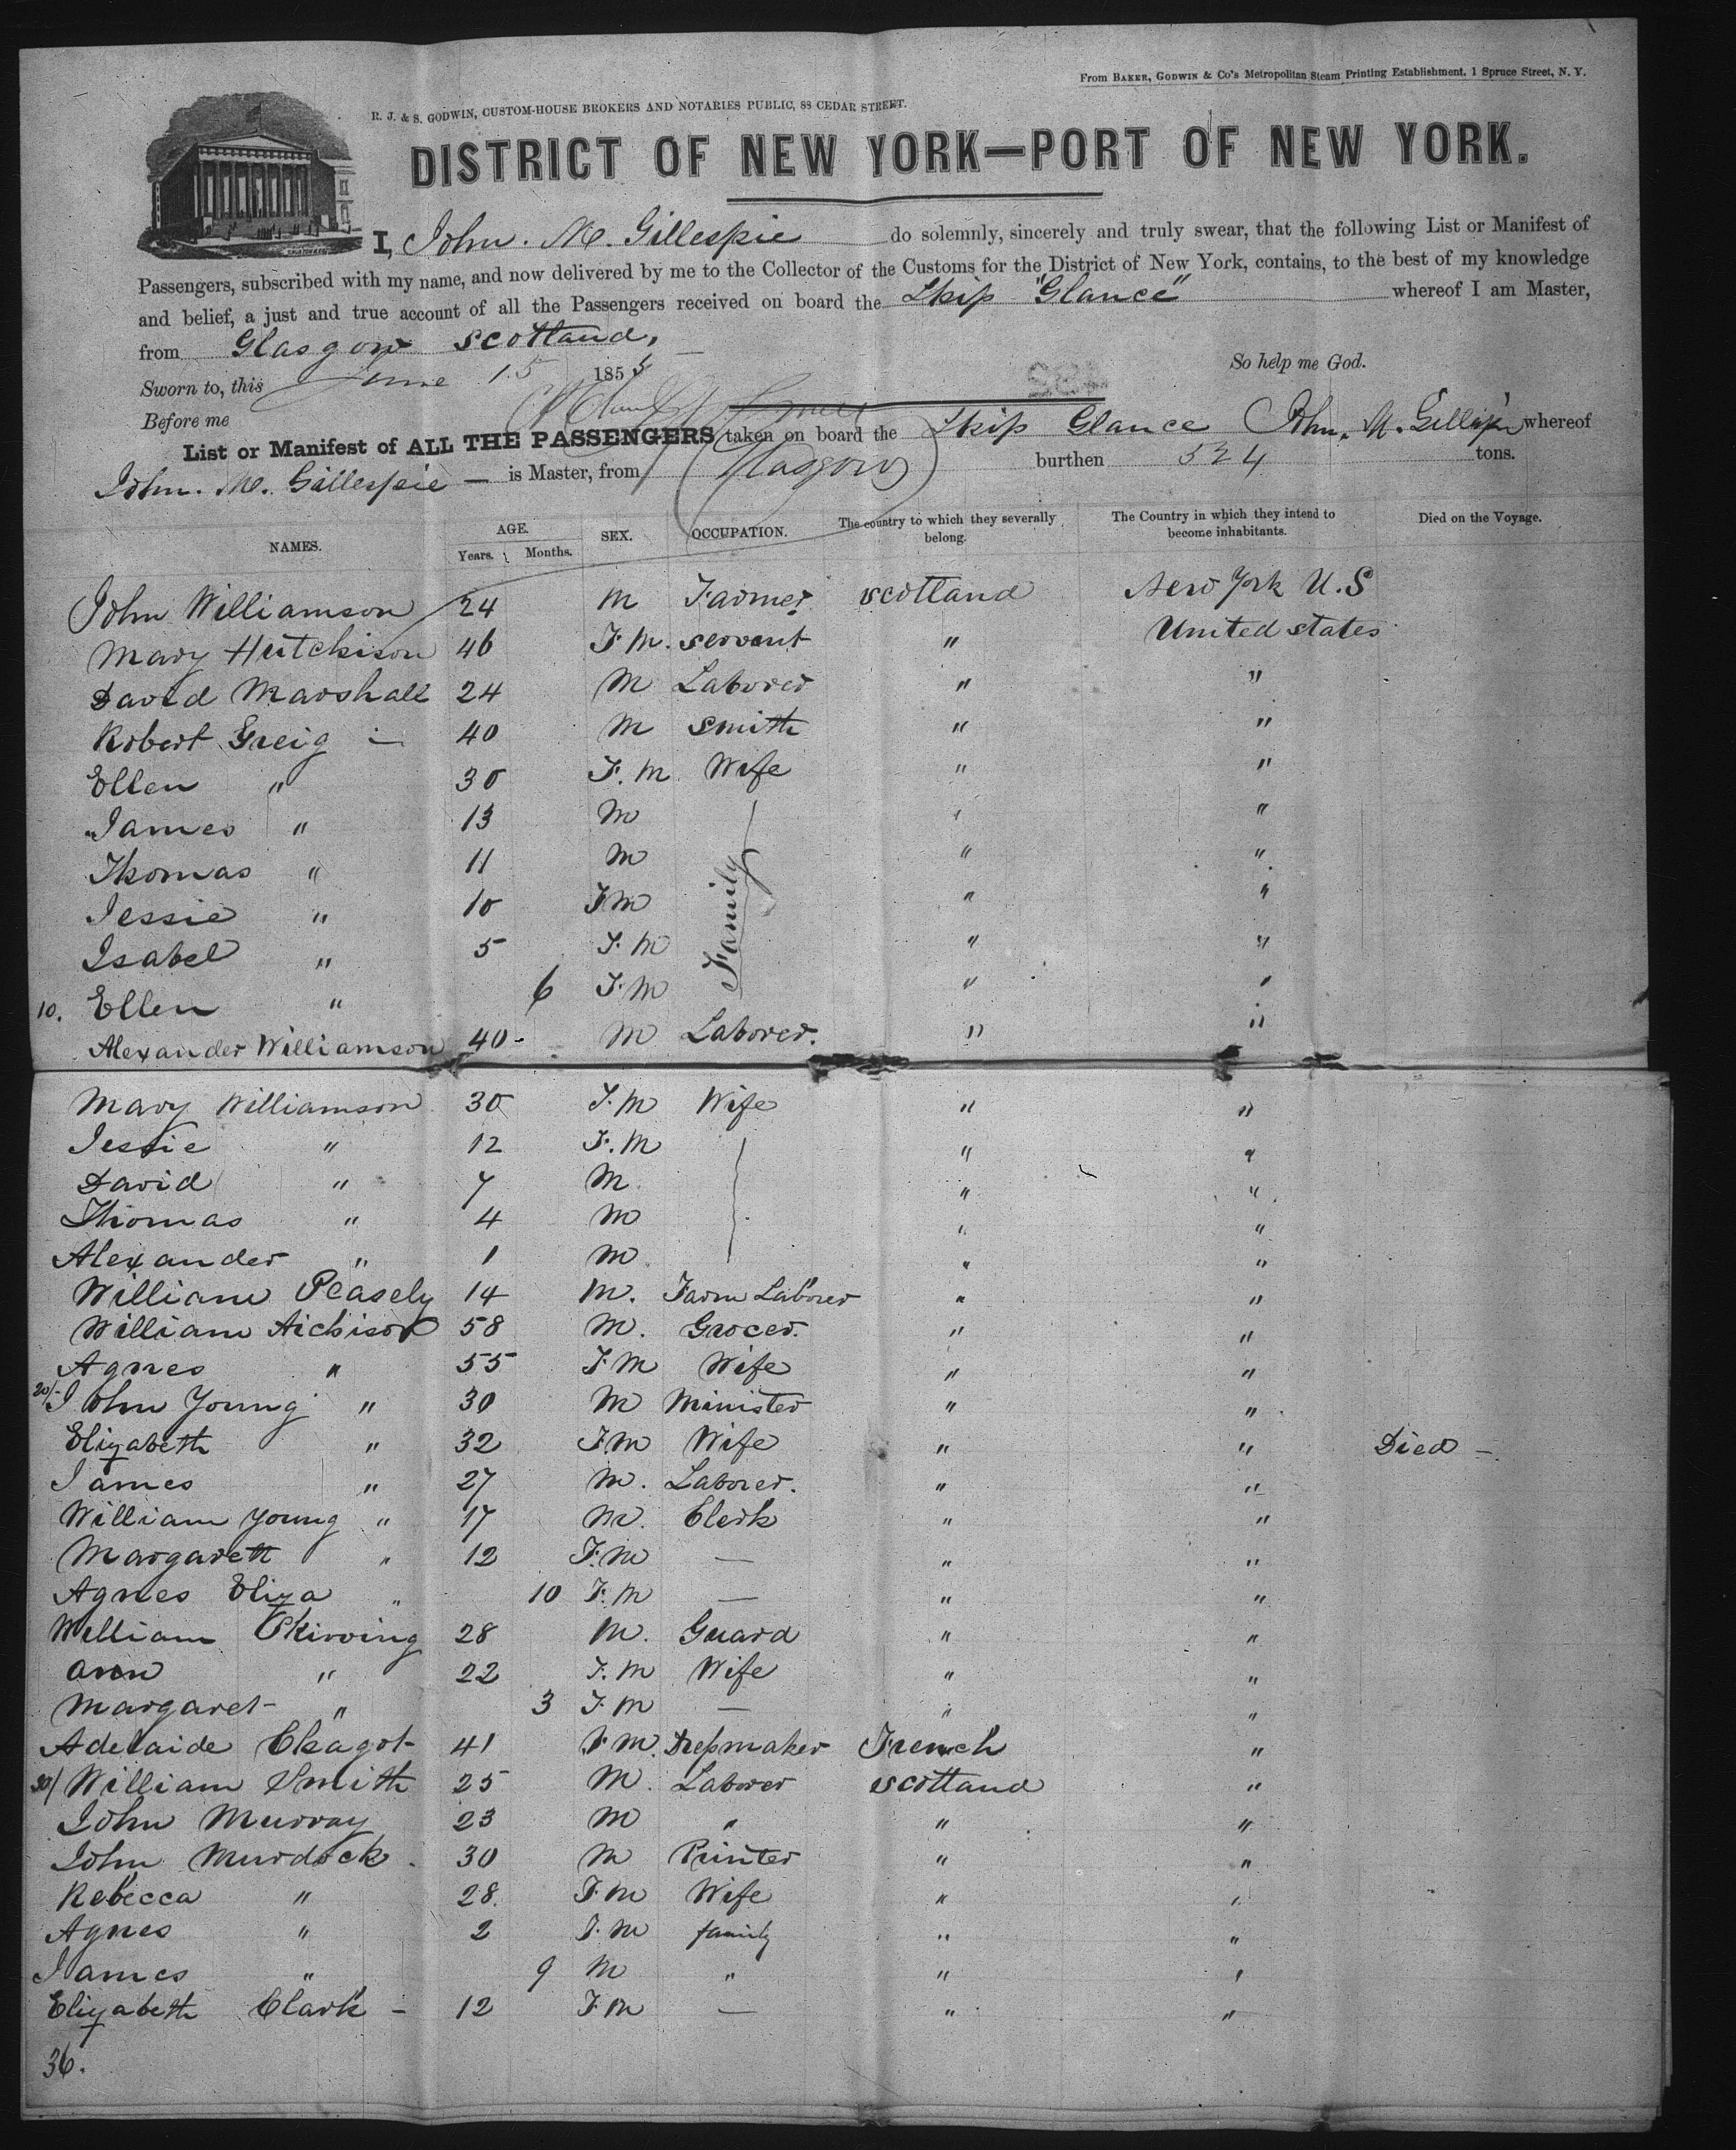 From BAKER, GODWIN & Co's Metropolitan Steam Printing Establishment, 1 Spruce Street, N. Y.
R. J. & S. GODWIN, CUSTOM-HOUSE BROKERS AND NOTARIES PUBLIC, 88 CEDAR STREET.
DISTRICT OF NEW YORK—PORT OF NEW YORK.
I, John. M. Gillespie do solemnly, sincerely and truly swear, that the following List or Manifest of
Passengers, subscribed with my name, and now delivered by me to the Collector of the Customs for the District of New York, contains, to the best of my knowledge
and belief, a just and true account of all the Passengers received on board the Ship "Glance" whereof I am Master,
from Glasgow Scotland.
So help me God.
Sworn to, this June 15 1855
Before me
List or Manifest of ALL THE PASSENGERS taken on board the Ship Glance John. M. Gillespie whereof
John. M. Gillespie — is Master, from Glasgow burthen 524 tons.
NAMES. AGE. Years. Months. SEX. OCCUPATION. The country to which they severally belong. The Country in which they intend to become inhabitants. Died on the Voyage.
John Williamson 24 M Farmer Scotland New York U.S
Mary Hutchison 46 F.M. Servant " United States
David Marshall 24 M Laborer " "
Robert Greig 40 M Smith " "
Ellen " 30 F.M Wife " "
James " 13 M " "
Thomas " 11 M " "
Jessie " 10 F M " "
Isabel " 5 F.M " "
Family
10. Ellen " 6 F.M " "
Alexander Williamson 40 - M Laborer. " "
Mary Williamson 30 F.M Wife " "
Jessie " 12 F.M " "
David " 7 M " "
Thomas " 4 M " "
Alexander " 1 M " "
William Peasely 14 M. Farm Laborer " "
William Aichison 58 M. Grocer. " "
Agnes " 55 F.M Wife " "
20/ John Young " 30 M Minister " "
Elizabeth " 32 F.M Wife " " Died —
James " 27 M. Laborer. " "
William Young " 17 M. Clerk " "
Margarett " 12 F.M — " "
Agnes Eliza " 10 F.M — " "
William Skirving 28 M. Guard " "
Ann " 22 F.M Wife " "
Margaret " 3 F.M — " "
Adelaide Chagot 41 F.M. Dressmaker French "
30/ William Smith 25 M. Laborer Scotland "
John Murray 23 M " " "
John Murdock. 30 M Printer " "
Rebecca " 28. F.M Wife " "
Agnes " 2 F.M family " "
James " 9 M " " "
Elizabeth Clark - 12 F.M — " "
36.